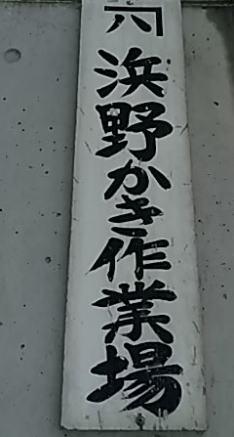 八
浜野かき作業場